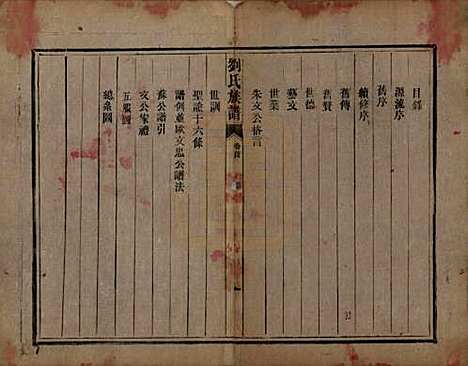 目錄
源流序
舊序
續修序
舊傳
舊贊
世德
藝文
世業
朱文公格言
劉氏族譜
卷首
世訓
聖諭十六條
譜例並歐文忠公譜法
蘇公譜引
文公家禮
五服圖
總系圖